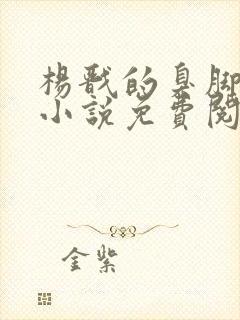 楊戬的臭脚
小說免費閱
金紫